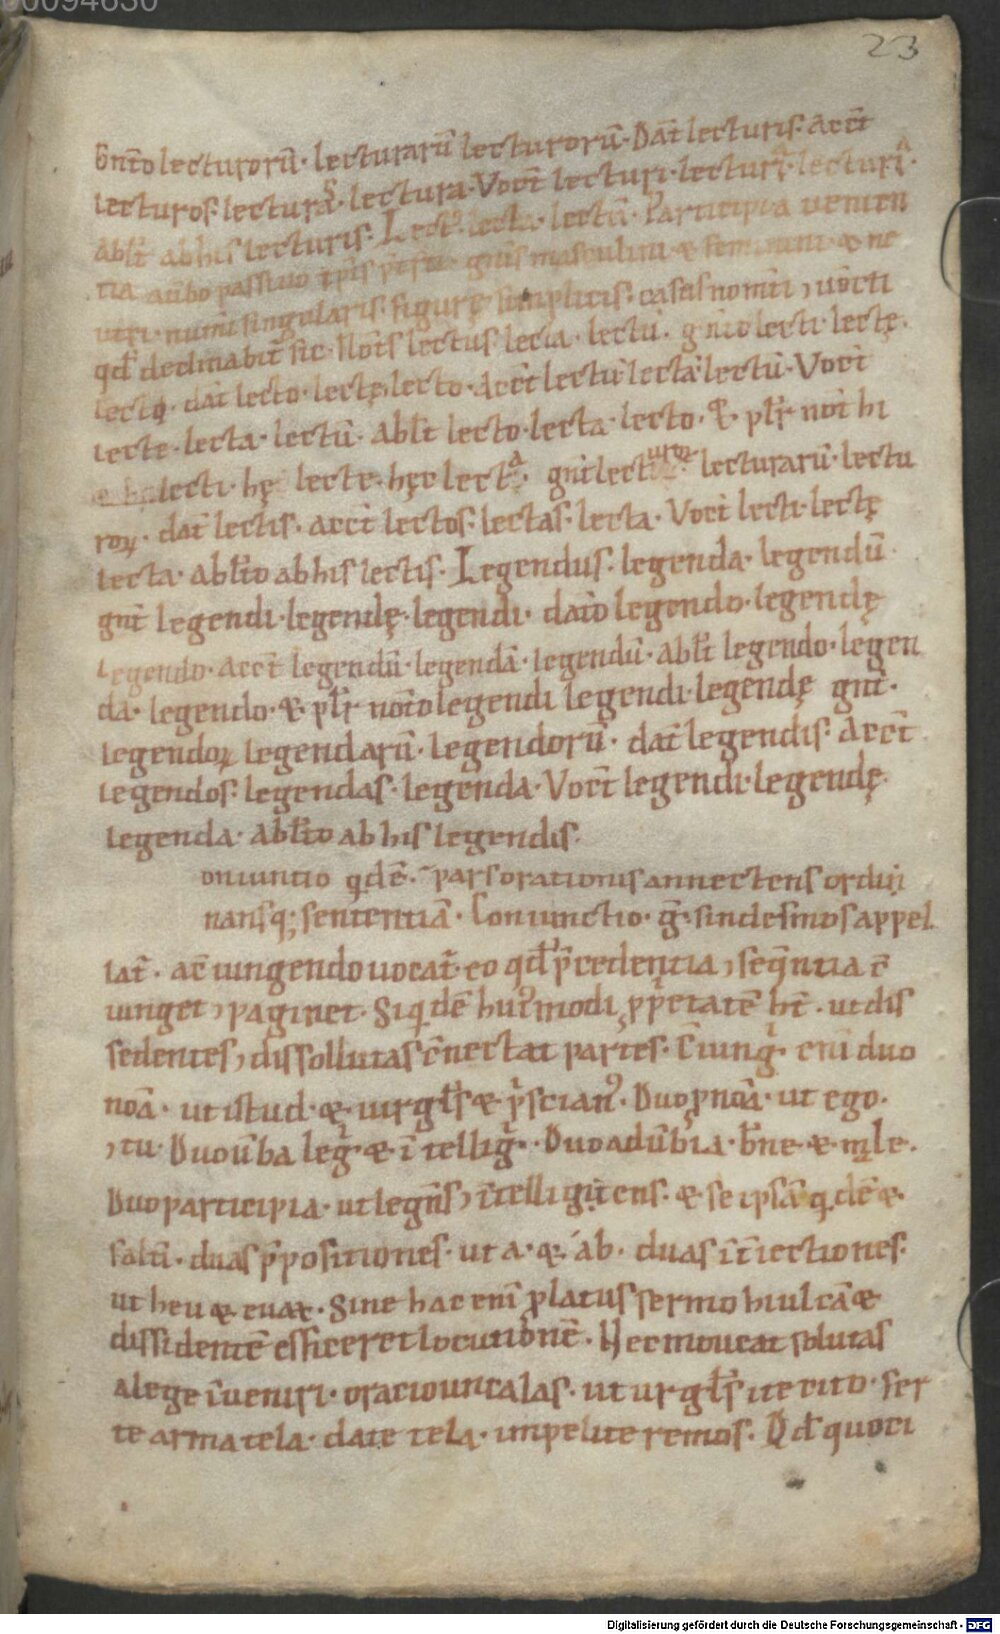 00094630
23
Gnt̄o lecturorū· lecturarū lecturorū· Dat̄ lecturis· Acct̄
lecturos· lecturas· lectura· Voct̄ lecturi· lecture· lectura·
Ablt̄ ab his lecturis· Lectꝰ· lecta· lectū· Participia uenien
tia a uerbo passiuo masculini & feminini & ne
utri· num̄i singularis· figurę simplicis· casus nom̄ti ⁊ uocti
qd̄ declinabit̄ sic· Nots̄ lectus lecta· lectū· gnīto lecti· lectę·
lecti· dat̄ lecto· lectę lecto· Acct̄ lectū· lectā· lectū· Voct̄
lecte· lecta· lectū· Ablt̄ lecto· lecta· lecto· & plr̄ not̄ hi
lecti· hę lecte· hęc lecta· gnt̄ lecturoꝝ· lecturarū· lectu
roꝝ· dat̄ lectis· Acct̄ lectos· lectas· lecta· Voct̄ lecti· lectę
lecta· Ablt̄o ab his lectis· Legendus· legenda· legendū·
gnt̄ legendi· legendę· legendi· dat̄o legendo· legendę
legendo· Acct̄ legendū· legendā· legendū· Ablt̄ legendo· legen
da· legendo· & plr̄ not̄o legendi legendi· legendę gnt̄·
legendoꝝ legendarū· legendorū· dat̄ legendis· Acct̄
legendos· legendas· legenda· Voct̄ legendi· legendę·
legenda· Ablt̄o ab his legendis·
oniuntio qdē· pars orationis annectens ordi
nansq; sententiā· Coniunctio· ḡ· sindesmos appel
lat̄· ac̄ iungendo uocat̄· eo qd̄ p̄cedentia ⁊ seq̄ntia c̄
iunget ⁊ paginet· Siqdē huiꝰmodi ꝓp̄etatē ht̄· ut dis
sedentes ⁊ dissollutas c̄nectat partes· C̄iungit enī duo
noā· ut istud· & uirgl̄s & p̄scianꝰ· Duo ꝓnoā· ut ego·
⁊ tu· Duo ūba legit & ītelligit· Duo adūbia· bn̄e· & mle·
Duo participia· ut legn̄s ⁊ ītelligens· & se ipsā qdē &
saltī· duas p̄positiones· ut a· & ab· duas īt̄iectiones·
ut heu & euax· Sine hac enī ꝓlatus sermo hiulcā &
dissidentē efficeret locutionē· Hec moueat solutas
a lege īueniri· oraciounculas· ut uirgl̄s ite cito· fer
te arma tela· date tela· impelite remos· Qd̄ quoci
Digitalisierung gefördert durch die Deutsche Forschungsgemeinschaft - DFG